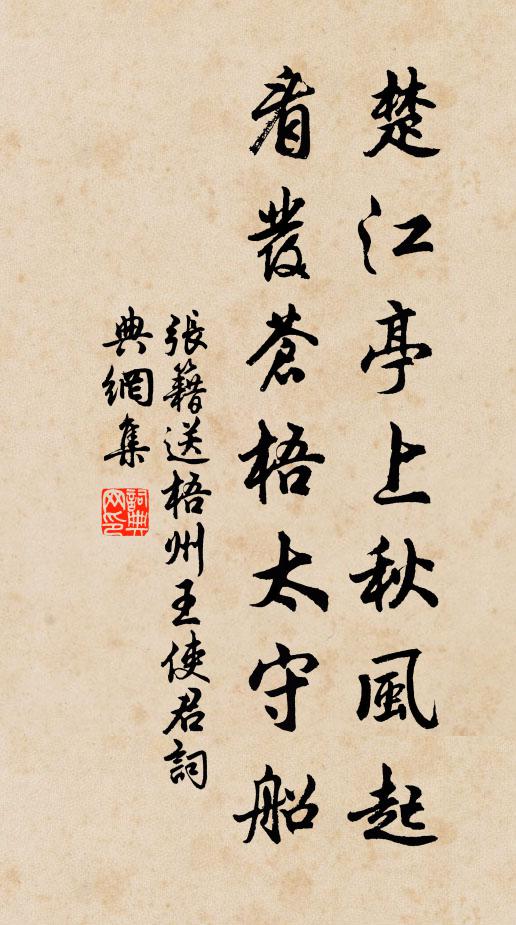 楚江亭上秋風起
看發蒼梧太守船
張籍送梧州王使君詞
典網集
詞典網印